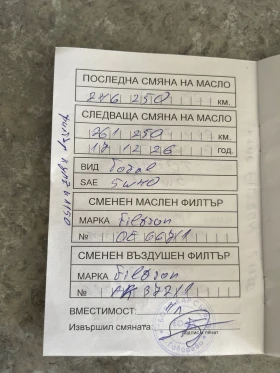 ПОСЛЕДНА СМЯНА НА МАСЛО
246 250 КМ.
СЛЕДВАЩА СМЯНА НА МАСЛО
261 250 КМ.
17 12 26 ГОД.
ВИД Total
SAE 5w40
СМЕНЕН МАСЛЕН ФИЛТЪР
МАРКА Filtron
№ OE 667/1
СМЕНЕН ВЪЗДУШЕН ФИЛТЪР
МАРКА Filtron
№ 372/1
ВМЕСТИМОСТ:
Извършил смяната
подпис и печат
филтър купе k 1150